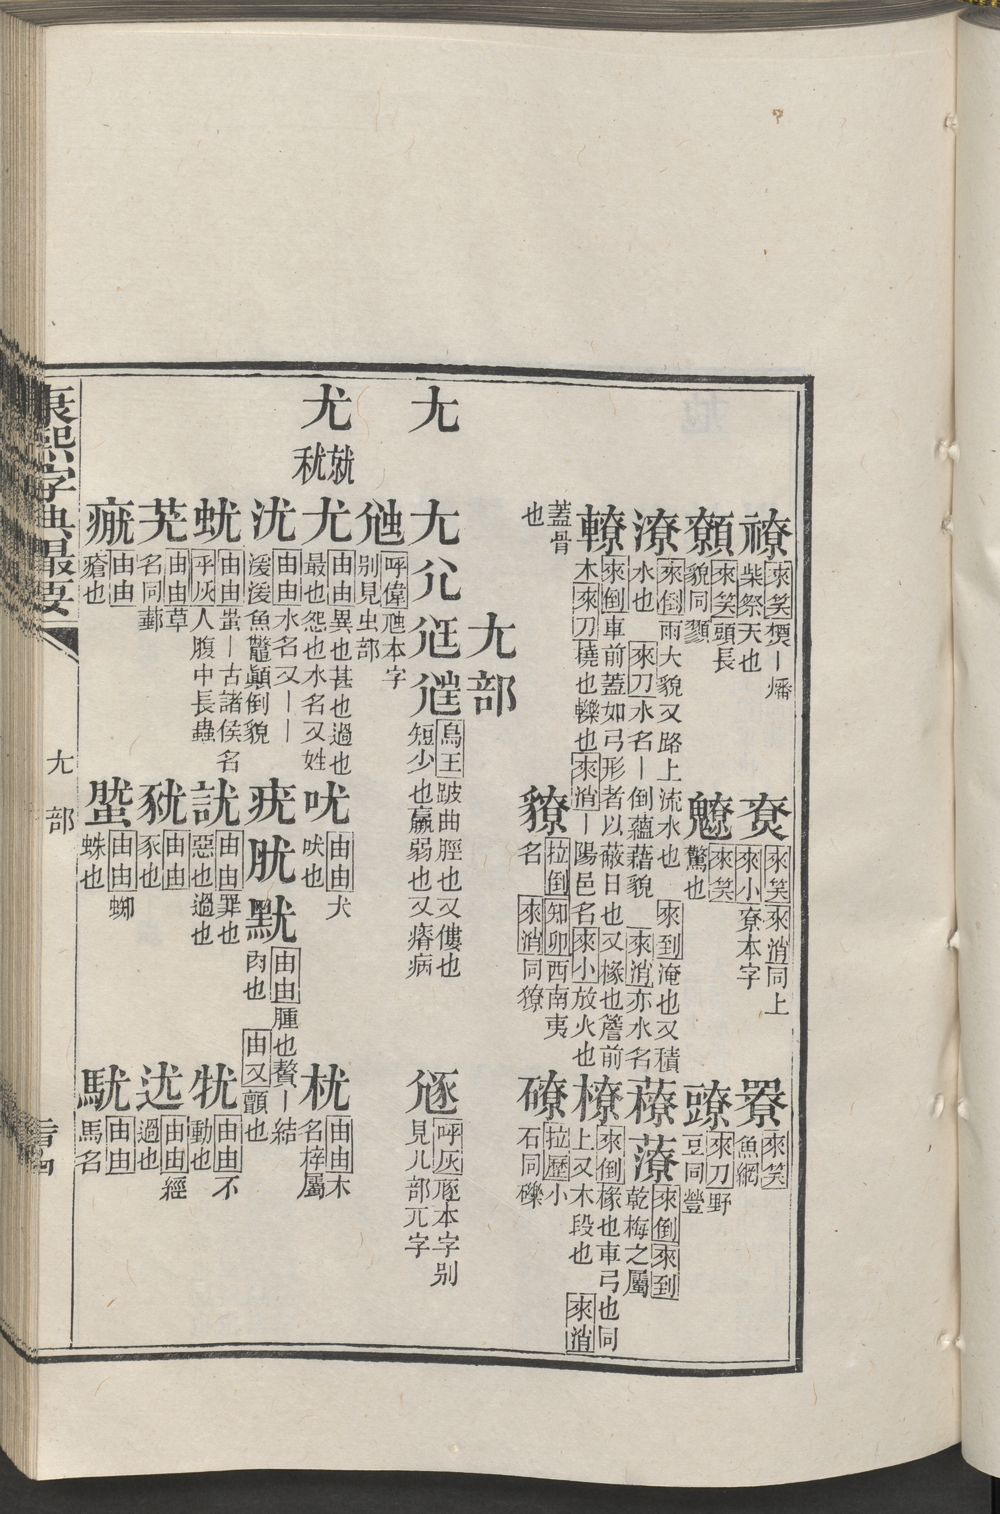 禜來笑㷳丨燔柴祭天也
尞來笑來消同上來小寮本字
䍡來笑魚網
顟來笑頭長貌同顟
䰂來笑驚也
䝀來刀野豆同䝁
潦來倒雨大貌又路上流水也 來到淹也又積水也 來刀水名丨倒蘊藉貌 來消亦水名
䕩藔來倒來到乾梅之屬
轑來倒車前蓋如弓形者以蔽日也又椽也簷前木來刀橈也轢也來消丨陽邑名來小放火也
橑來倒椽也車弓也同上又木段也 來消蓋骨也
獠拉倒知卯西南夷名 來消同獠
磟拉歷小石同礫
尢部
尢
尢尣尪尩烏王跛曲脛也又僂也短少也羸弱也又瘠病
㞀呼灰豗本字別見儿部兀字
㐌呼偉虺本字別見虫部
尤
就 秫
尤由由異也甚也過也最也怨也水名又姓
吠由由犬吠也
枕由由木名梓屬
沋由由水名又丨丨湲浚魚鼈顛倒貌
疣肬默由由腫也贅丨結肉也 由又顫也
蚘由由蚩丨古諸侯名乎灰人腹中長蟲
訧由由罪也惡也過也
牰由由不動也
䒴由由草名同蕕
㹨由由豕也
迶由由經過也
㽽由由瘡也
蟗由由蝤蛛也
馻由由馬名
康熙字典最要
尢部